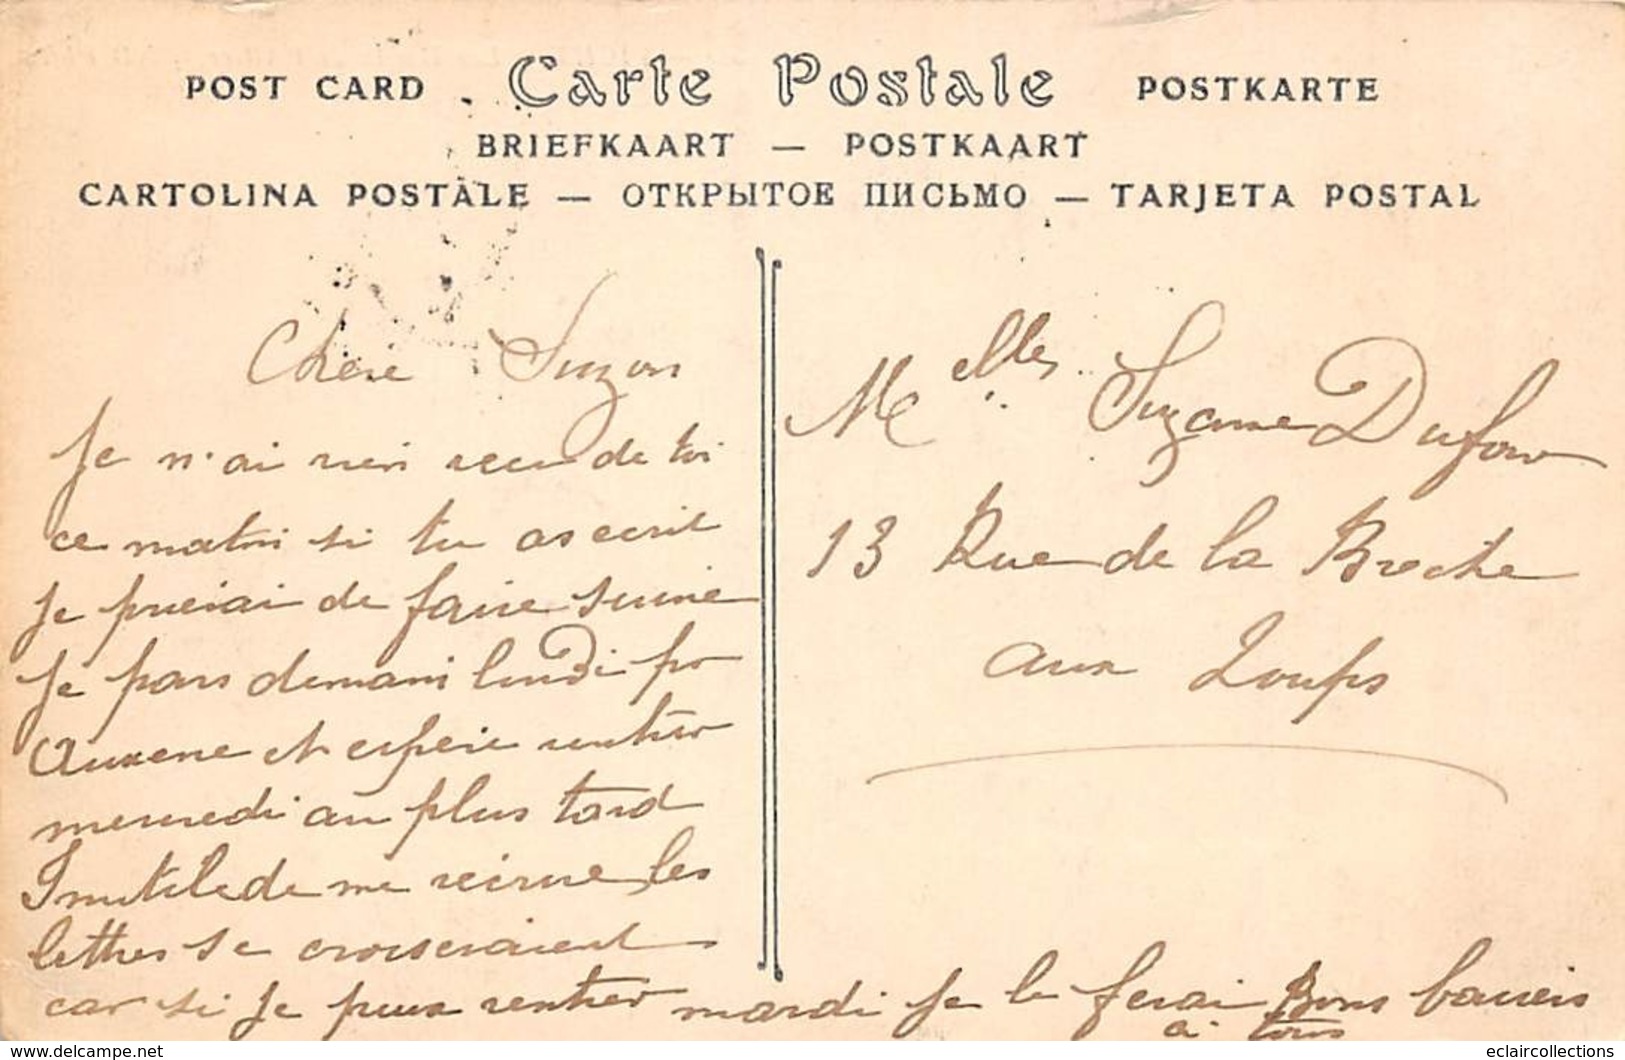 POST CARD Carte Postale POSTKARTE
BRIEFKAART — POSTKAART
CARTOLINA POSTALE — ОТКРЫТОЕ ПИСЬМО — TARJETA POSTAL
Chère Suzon
Je n'ai rien recu de toi
ce matin si tu as ecrit
je prierai de faire suivre
Je pars demain lundi pr
Auxerre et espère rentrer
mercredi au plus tard
Inutile de me recrire les
lettres se croiseraient
car si je peux rentrer mardi je le ferai Bons baisers
a tous
Melles Suzanne Dufour
13 Rue de la Breche
aux Loups
eclaircollections